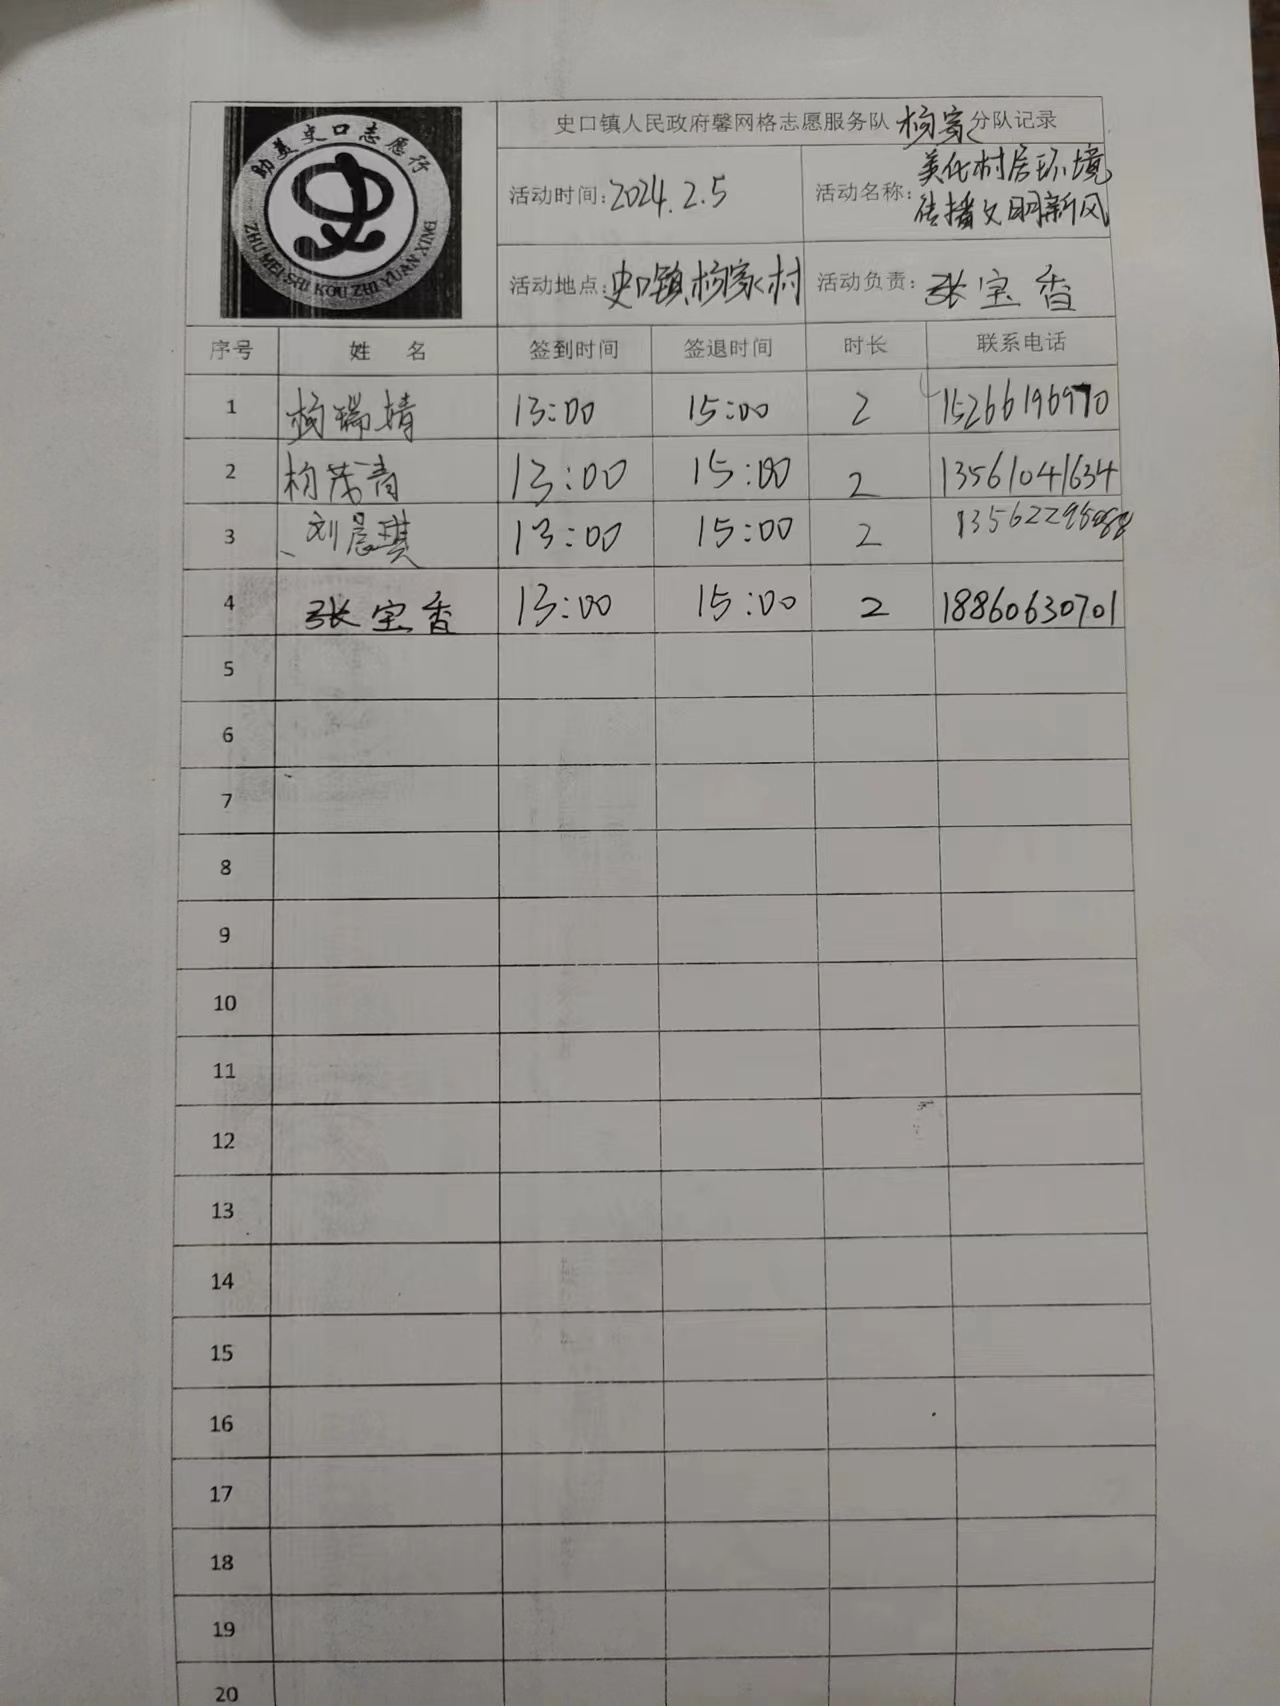 助美史口志愿行
ZHU MEI SHI KOU ZHI YUAN XING
史口镇人民政府馨网格志愿服务队 杨家 分队记录
活动时间:2024.2.5
活动名称:美化村居环境
传播文明新风
活动地点:史口镇杨家村
活动负责:张宝香
序号 姓 名 签到时间 签退时间 时长 联系电话
1 杨瑞婧 13:00 15:00 2 15266196970
2 杨茂青 13:00 15:00 2 13561041634
3 刘晨琪 13:00 15:00 2
4 张宝香 13:00 15:00 2 18860630701
5
6
7
8
9
10
11
12
13
14
15
16
17
18
19
20